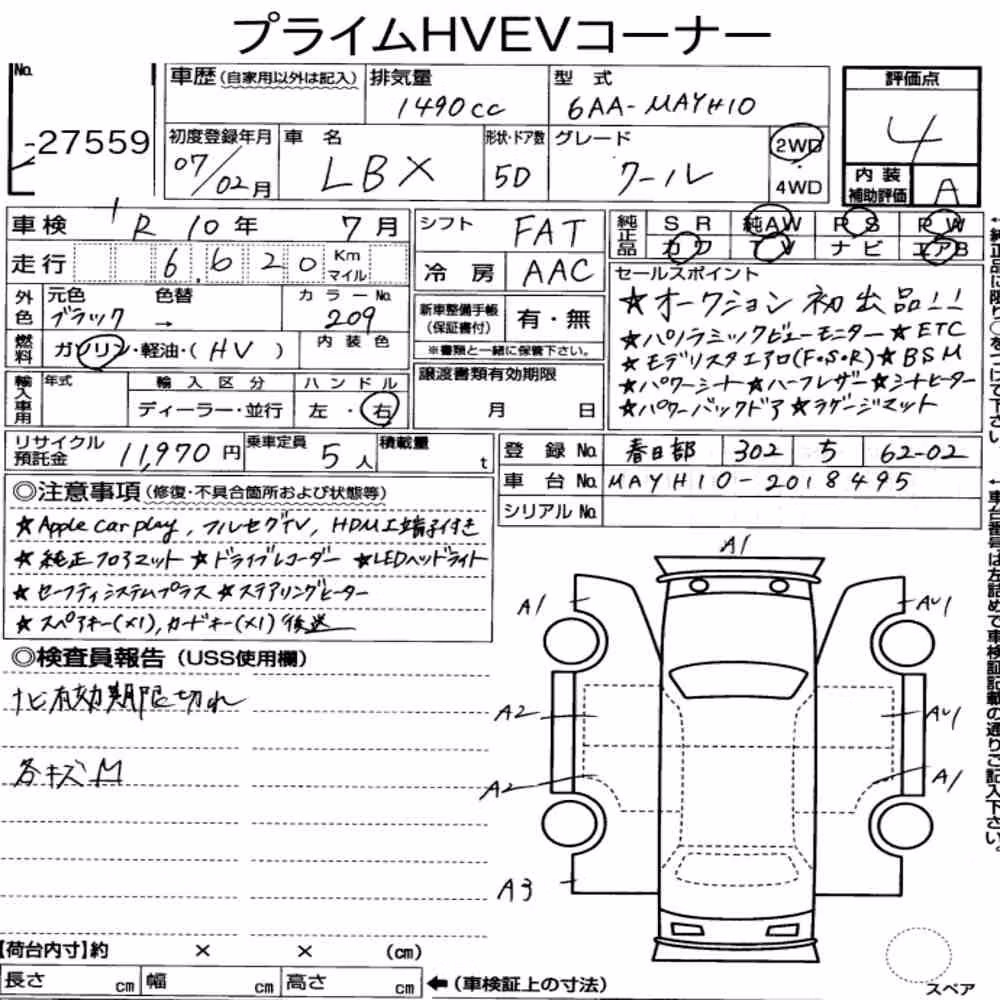 プライムHVEVコーナー
No.
27559
車歴(自家用以外は記入)
排気量
1490cc
型 式
6AA-MAYH10
評価点
4
初度登録年月
07/02月
車 名
LBX
形状・ドア数
5D
グレード
クール
2WD
・
4WD
内 装
補助評価
A
車検 R10年 7月
走行 6,620 Km
マイル
シフト FAT
冷 房 AAC
純正品
SR 純AW PS PW
カワ TV ナビ エアB
外色
元色 色替 カラーNo.
ブラック → 209
燃料
ガソリン・軽油・(HV)
内 装 色
新車整備手帳
(保証書付)
有・無
※書類と一緒に保管下さい。
輸入車用
年式
輸 入 区 分
ディーラー・並行
ハ ン ド ル
左 ・ 右
譲渡書類有効期限
月 日
セールスポイント
★オークション初出品!!
★パノラミックビューモニター★ETC
★モデリスタエアロ(F・S・R)★BSM
★パワーシート★ハーフレザー★シートヒーター
★パワーバックドア★ラゲージマット
リサイクル
預託金
11,970円
乗車定員
5人
積載量
t
登 録 No. 春日部 302 ち 62-02
車 台 No. MAYH10-2018495
シリアルNo.
◎注意事項(修復・不具合箇所および状態等)
★Apple car play, フルセグTV, HDMI端子付き
★純正フロアマット ★ドライブレコーダー ★LEDヘッドライト
★セーフティシステムプラス ★ステアリングヒーター
★スペアキー(×1),カードキー(×1)後送
◎検査員報告(USS使用欄)
ナビ有効期限切れ
各キズM
A1
A1
AU1
A2
AU1
A2
A1
A3
【荷台内寸】約 × × (cm)
長さ cm 幅 cm 高さ cm ←(車検証上の寸法)
スペア
←純正品に限り○をつけて下さい。
←車台番号は左詰めで車検証記載の通りご記入下さい。